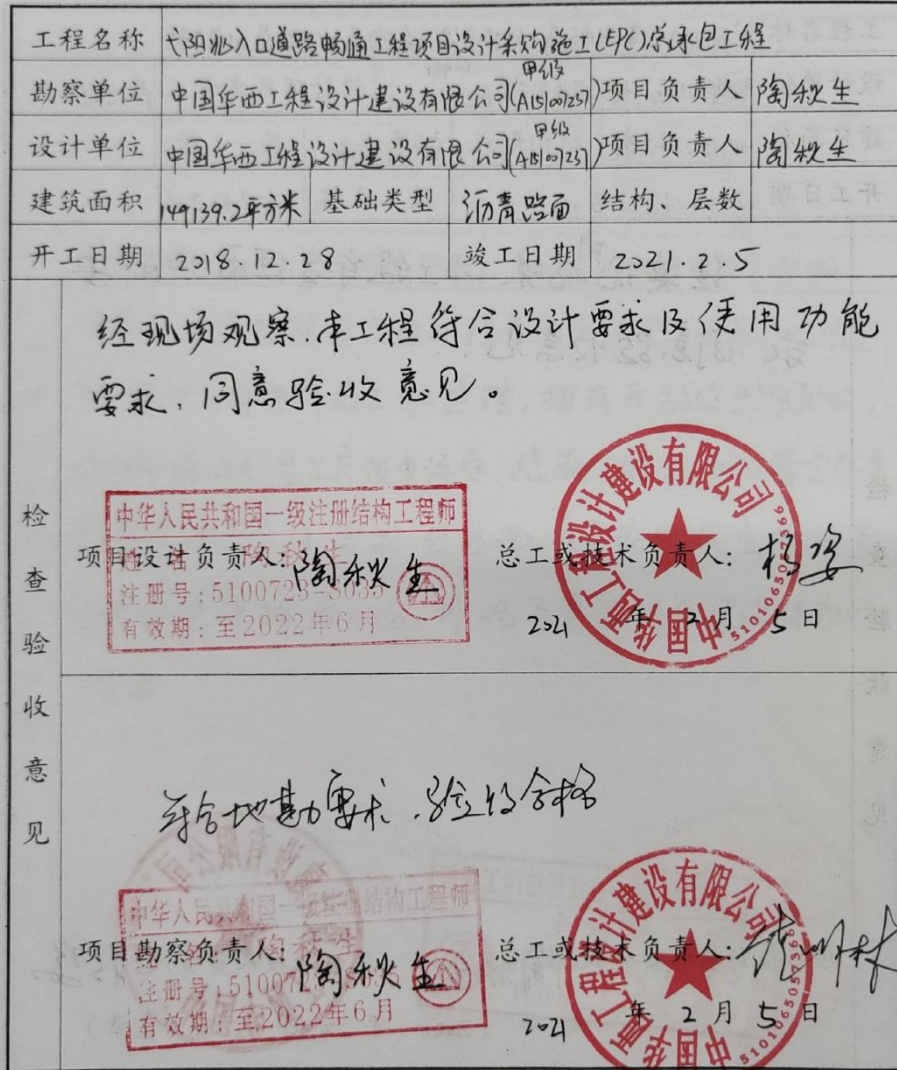 工程名称 弋阳北入口道路畅通工程项目设计采购施工(EPC)总承包工程
勘察单位 中国华西工程设计建设有限公司(甲级A151007257) 项目负责人 陶秋生
设计单位 中国华西工程设计建设有限公司(甲级A151007237) 项目负责人 陶秋生
建筑面积 149139.2平方米 基础类型 沥青路面 结构、层数
开工日期 2018.12.28 竣工日期 2021.2.5
检查验收意见
经现场观察,本工程符合设计要求及使用功能
要求,同意验收意见。
中华人民共和国一级注册结构工程师
姓名:陶秋生
注册号:5100723-S035
有效期:至2022年6月
项目设计负责人:陶秋生 总工或技术负责人:杨姿
中国华西工程设计建设有限公司
2021年2月5日
符合地勘要求,验收合格
中华人民共和国一级注册结构工程师
注册号:5100723-S035
有效期:至2022年6月
项目勘察负责人:陶秋生 总工或技术负责人:
中国华西工程设计建设有限公司
2021年2月5日